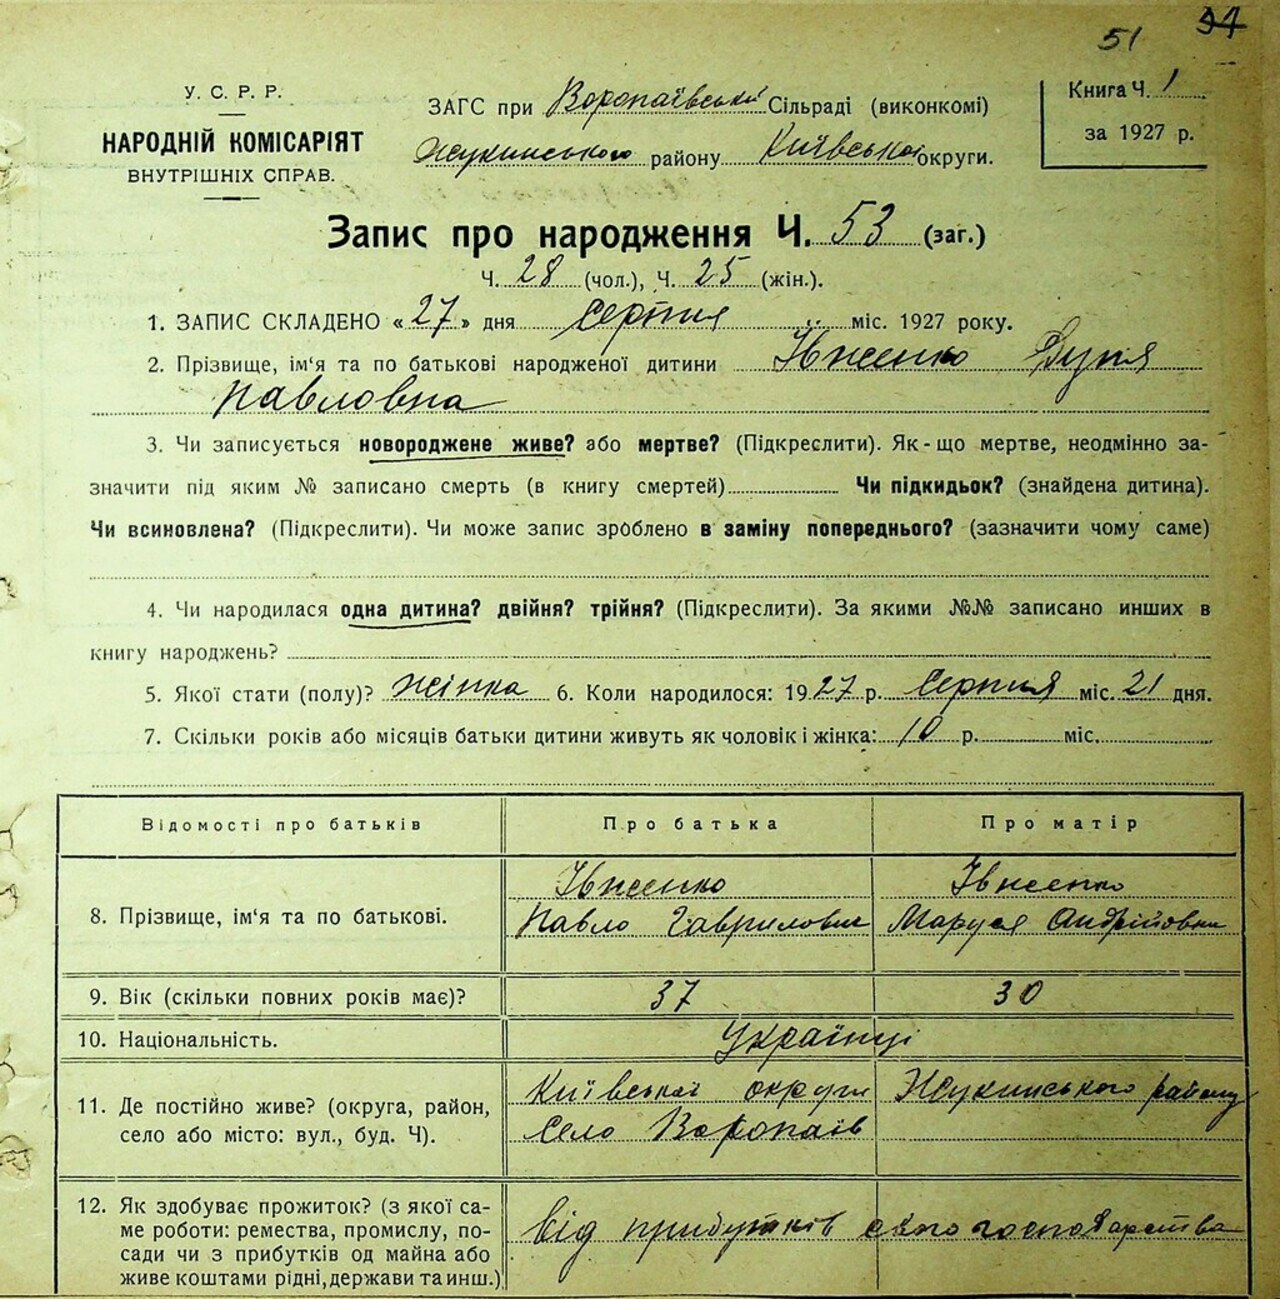 51 54
У. С. Р. Р.
НАРОДНІЙ КОМІСАРІЯТ
ВНУТРІШНІХ СПРАВ.
ЗАГС при Воропаївській Сільраді (виконкомі)
Жукинського району Київської округи.
Книга Ч. 1
за 1927 р.
Запис про народження Ч. 53 (заг.)
Ч. 28 (чол.), Ч. 25 (жін.).
1. ЗАПИС СКЛАДЕНО «27» дня серпня міс. 1927 року.
2. Прізвище, ім'я та по батькові народженої дитини Івженко
Павловна
3. Чи записується новороджене живе? або мертве? (Підкреслити). Як-що мертве, неодмінно за-
значити під яким № записано смерть (в книгу смертей) Чи підкидьок? (знайдена дитина).
Чи всиновлена? (Підкреслити). Чи може запис зроблено в заміну попереднього? (зазначити чому саме)
4. Чи народилася одна дитина? двійня? трійня? (Підкреслити). За якими №№ записано инших в
книгу народжень?
5. Якої стати (полу)? жінка 6. Коли народилося: 1927 р. серпня міс. 21 дня.
7. Скільки років або місяців батьки дитини живуть як чоловік і жінка: 10 р. міс.
Відомості про батьків Про батька Про матір
8. Прізвище, ім'я та по батькові.
Івженко
Павло Гаврилович
Івженко
Маруся Андрійовна
9. Вік (скільки повних років має)? 37 30
10. Національність. Українці
11. Де постійно живе? (округа, район,
село або місто: вул., буд. Ч).
Київської округи Жукинського району
село Воропаїв
12. Як здобуває прожиток? (з якої са-
ме роботи: ремества, промислу, по-
сади чи з прибутків од майна або
живе коштами рідні, держави та инш.)
від прибутків свого господарства